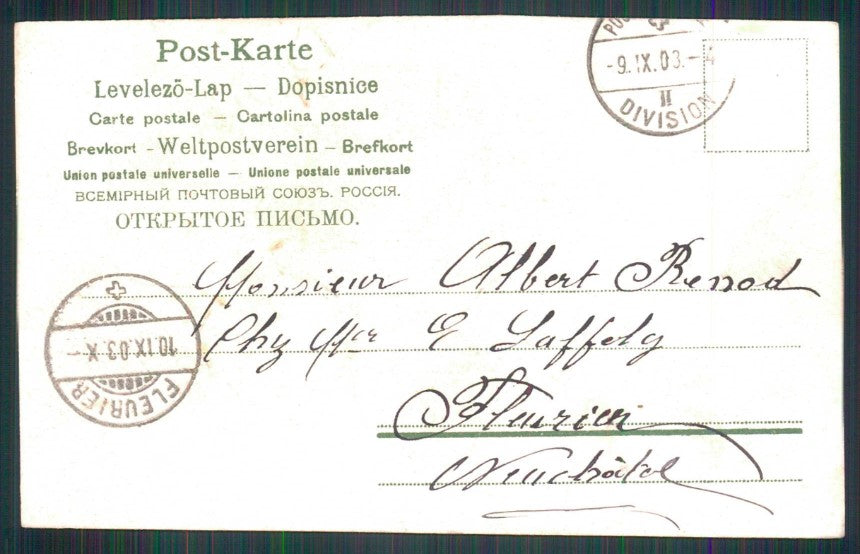 Post-Karte
Levelező-Lap — Dopisnice
Carte postale — Cartolina postale
Brevkort - Weltpostverein - Brefkort
Union postale universelle — Unione postale universale
ВСЕМІРНЫЙ ПОЧТОВЫЙ СОЮЗЪ. РОССІЯ.
ОТКРЫТОЕ ПИСЬМО.
-9.IX.03.-
II
DIVISION
Monsieur Albert Renod
Chz Mr E Laffely
Fleurier
Neuchâtel
10.IX.03.X-
FLEURIER